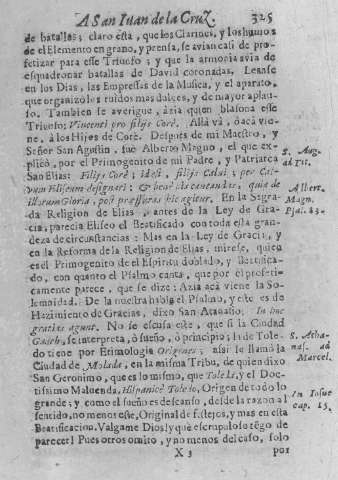 A San Iuan de la Cruz. 325
de batallas; claro està, que los Clarines, y los humos
de el Elemento en grano, y prensa, se avian casi de pro-
fetizar para esse Triunfo; y que la armonia avia de
esquadronar batallas de David coronadas. Leanse
en los Dias, las Empressas de la Musica, y el aparato,
que organizò los ruidos mas dulces, y de mayor aplau-
so. Tambien se averigue, àzia quien blasona esse
Triunfo: Vincenti pro filijs Corè. Allà và, ò acà vie-
ne, à los Hijos de Corè. Despues de mi Maestro, y
Señor San Agustin, fue Alberto Magno, el que ex-
plicò, por el Primogenito de mi Padre, y Patriarca
San Elias: Filijs Corè; idest, filijs Calai; per Cal-
vum Eliseum designari; & hoc
illarum Gloria, post pressuras hic agitur. En la Sagra-
da Religion de Elias, antes de la Ley de Gra-
cia, parecia Eliseo el Beatificado con toda esta gran-
deza de circustancias: Mas en la Ley de Gracia, y
en la Reforma de la Religion de Elias; mirese, quien
es el Primogenito de el Espiritu doblado, y Beatifica-
do, con quanto el Psalmo canta, que por èl profeti-
camente parece, que se dize: Azia acà viene la So-
lemnidad. De la nuestra habla el Psalmo, y este es de
Hazimiento de Gracias, dixo San Atanasio: In hoc
gratias agunt. No se escusa este, que si la Ciudad
Gaisch, se interpreta, ò sueño, ò principio; la de Tole-
do tiene por Etimologia Origines; assi se llamò la
Ciudad de Molade, en la misma Tribu, de quien dixo
San Geronimo, que es lo mismo, que Tolele, y el Doc-
tissimo Maluenda, Hispanicè Toleto, Origen de todo lo
grande; y como el sueño es descanso, desde la razon al
sentido, no menos esse, Original de festejos, y mas en esta
Beatificacion. Valgame Dios! y què escrupuloso rego de
parecer! Pues otros omito, y no menos del caso, solo
X 3 por
S. Aug.
ad Tit.
Alber.
Magn.
Psal. 83.
S. Atha-
nas. ad
Marcel.
In Iosue
cap. 15.